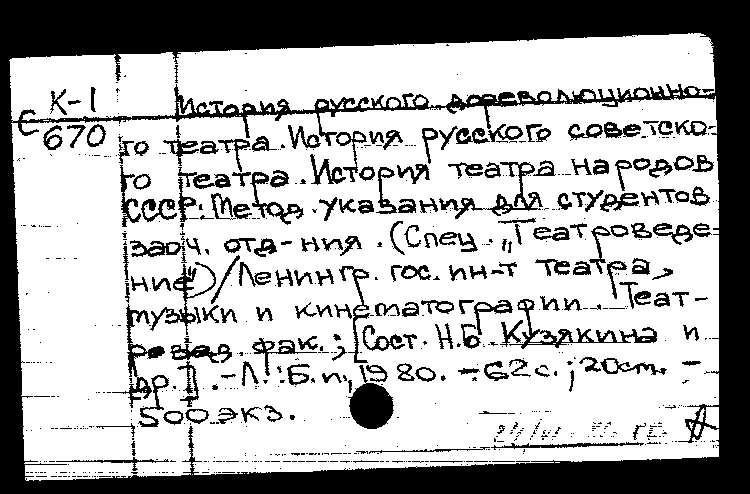 К-1
С 670
История русского дореволюционно-
го театра. История русского советско-
го театра. История театра народов
СССР: Метод. указания для студентов
заоч. отд-ния. (Спец. „Театроведе-
ние") / Ленингр. гос. ин-т театра,
музыки и кинематографии. Теат-
ровед. фак.; [Сост. Н.Б. Кузякина и
др.]. - Л.: Б.и., 1980. - 62 с.; 20 см. -
500 экз.